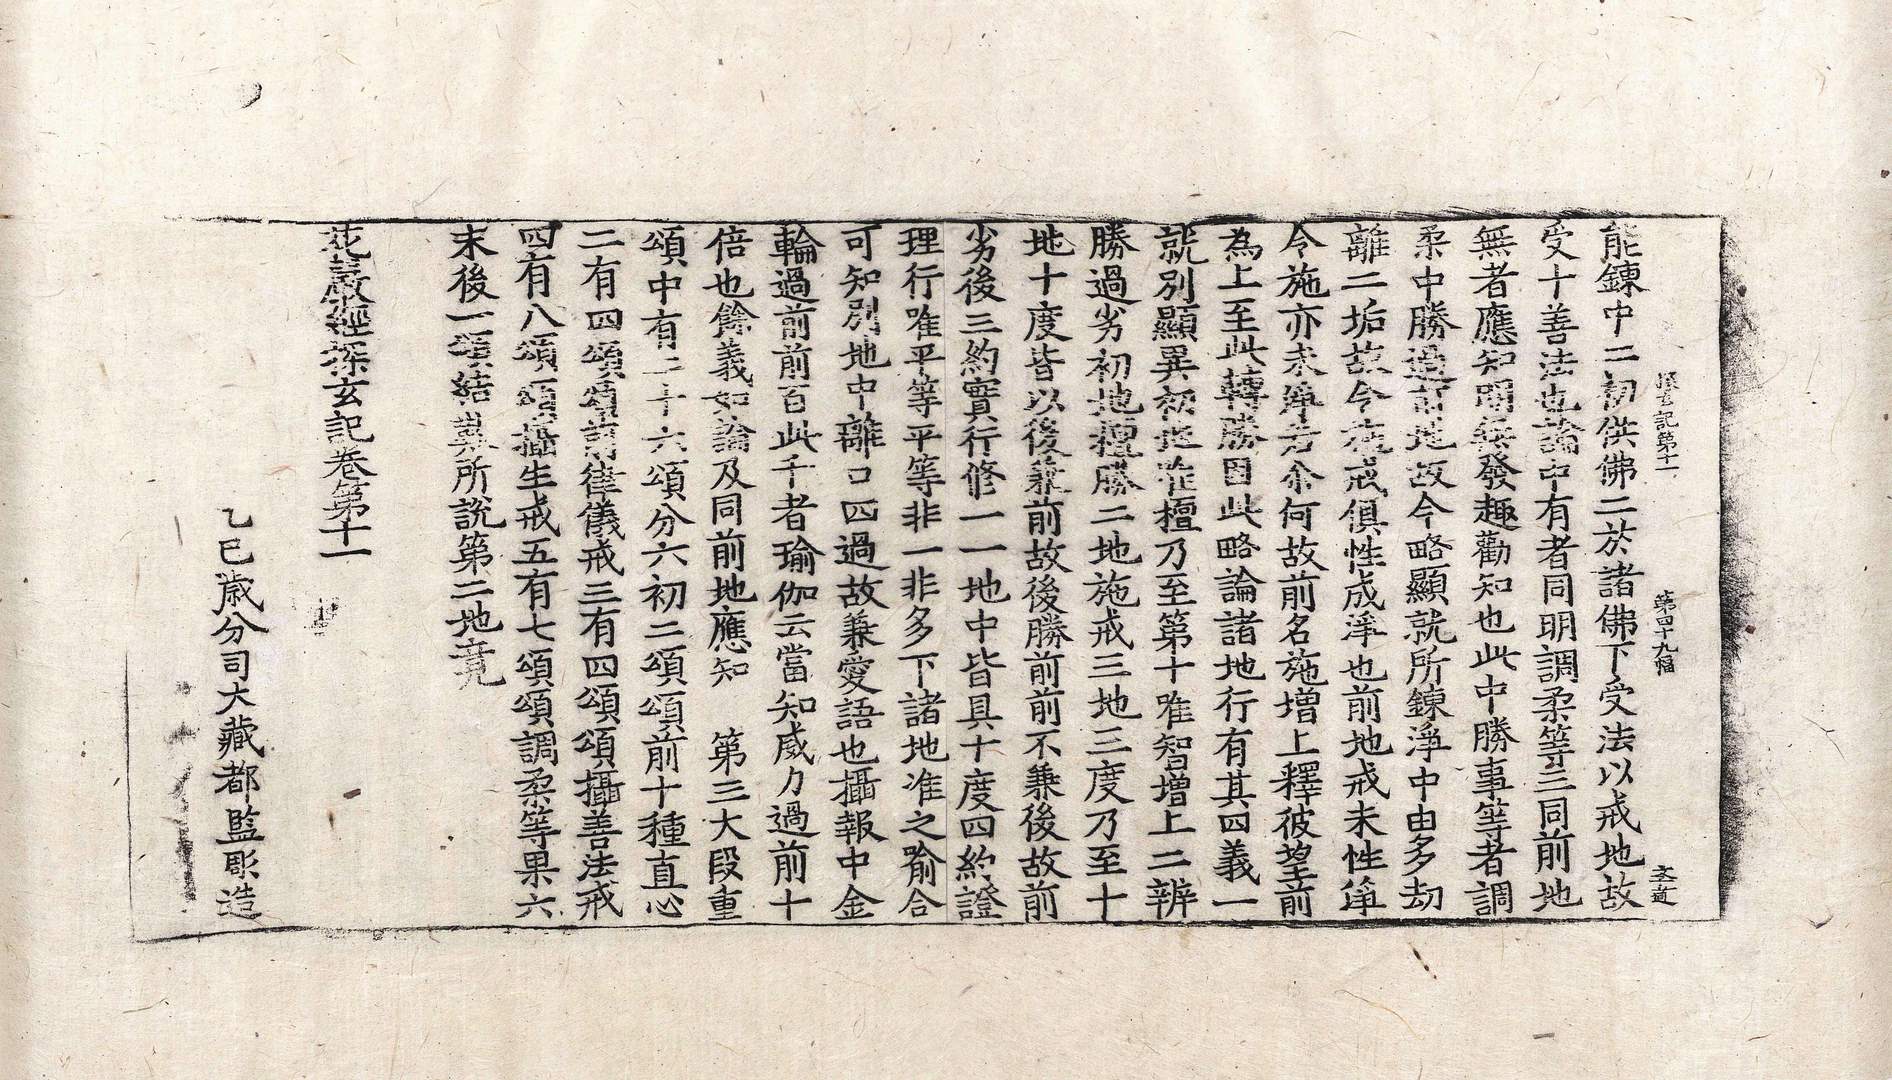 探玄記第十一 第四十九幅
能鍊中二初供佛二於諸佛下受法以戒地故
受十善法也論中有者同明調柔等三同前地
無者應知開無發趣勸知也此中勝事等者調
柔中勝過前地故今略顯就所鍊淨中由多劫
離二垢故令施戒俱性成淨也前地戒未性淨
令施亦未淨若尒何故前名施增上釋彼望前
為上至此轉勝因此略論諸地行有其四義一
就別顯異初地唯檀乃至第十唯智增上二辨
勝過劣初地檀勝二地施戒三地三度乃至十
地十度皆以後兼前故後勝前前不兼後故前
劣後三約實行修一一地中皆具十度四約證
理行唯平等平等非一非多下諸地准之喻合
可知別地中離口四過故兼愛語也攝報中金
輪過前前百此千者瑜伽云當知威力過前十
倍也餘義如論及同前地應知　第三大段重
頌中有二十六頌分六初二頌頌前十種直心
二有四頌頌前律儀戒三有四頌頌攝善法戒
四有八頌頌攝生戒五有七頌頌調柔等果六
末後一頌結歎所說第二地竟
花嚴經探玄記卷第十一
乙巳歲分司大藏都監彫造